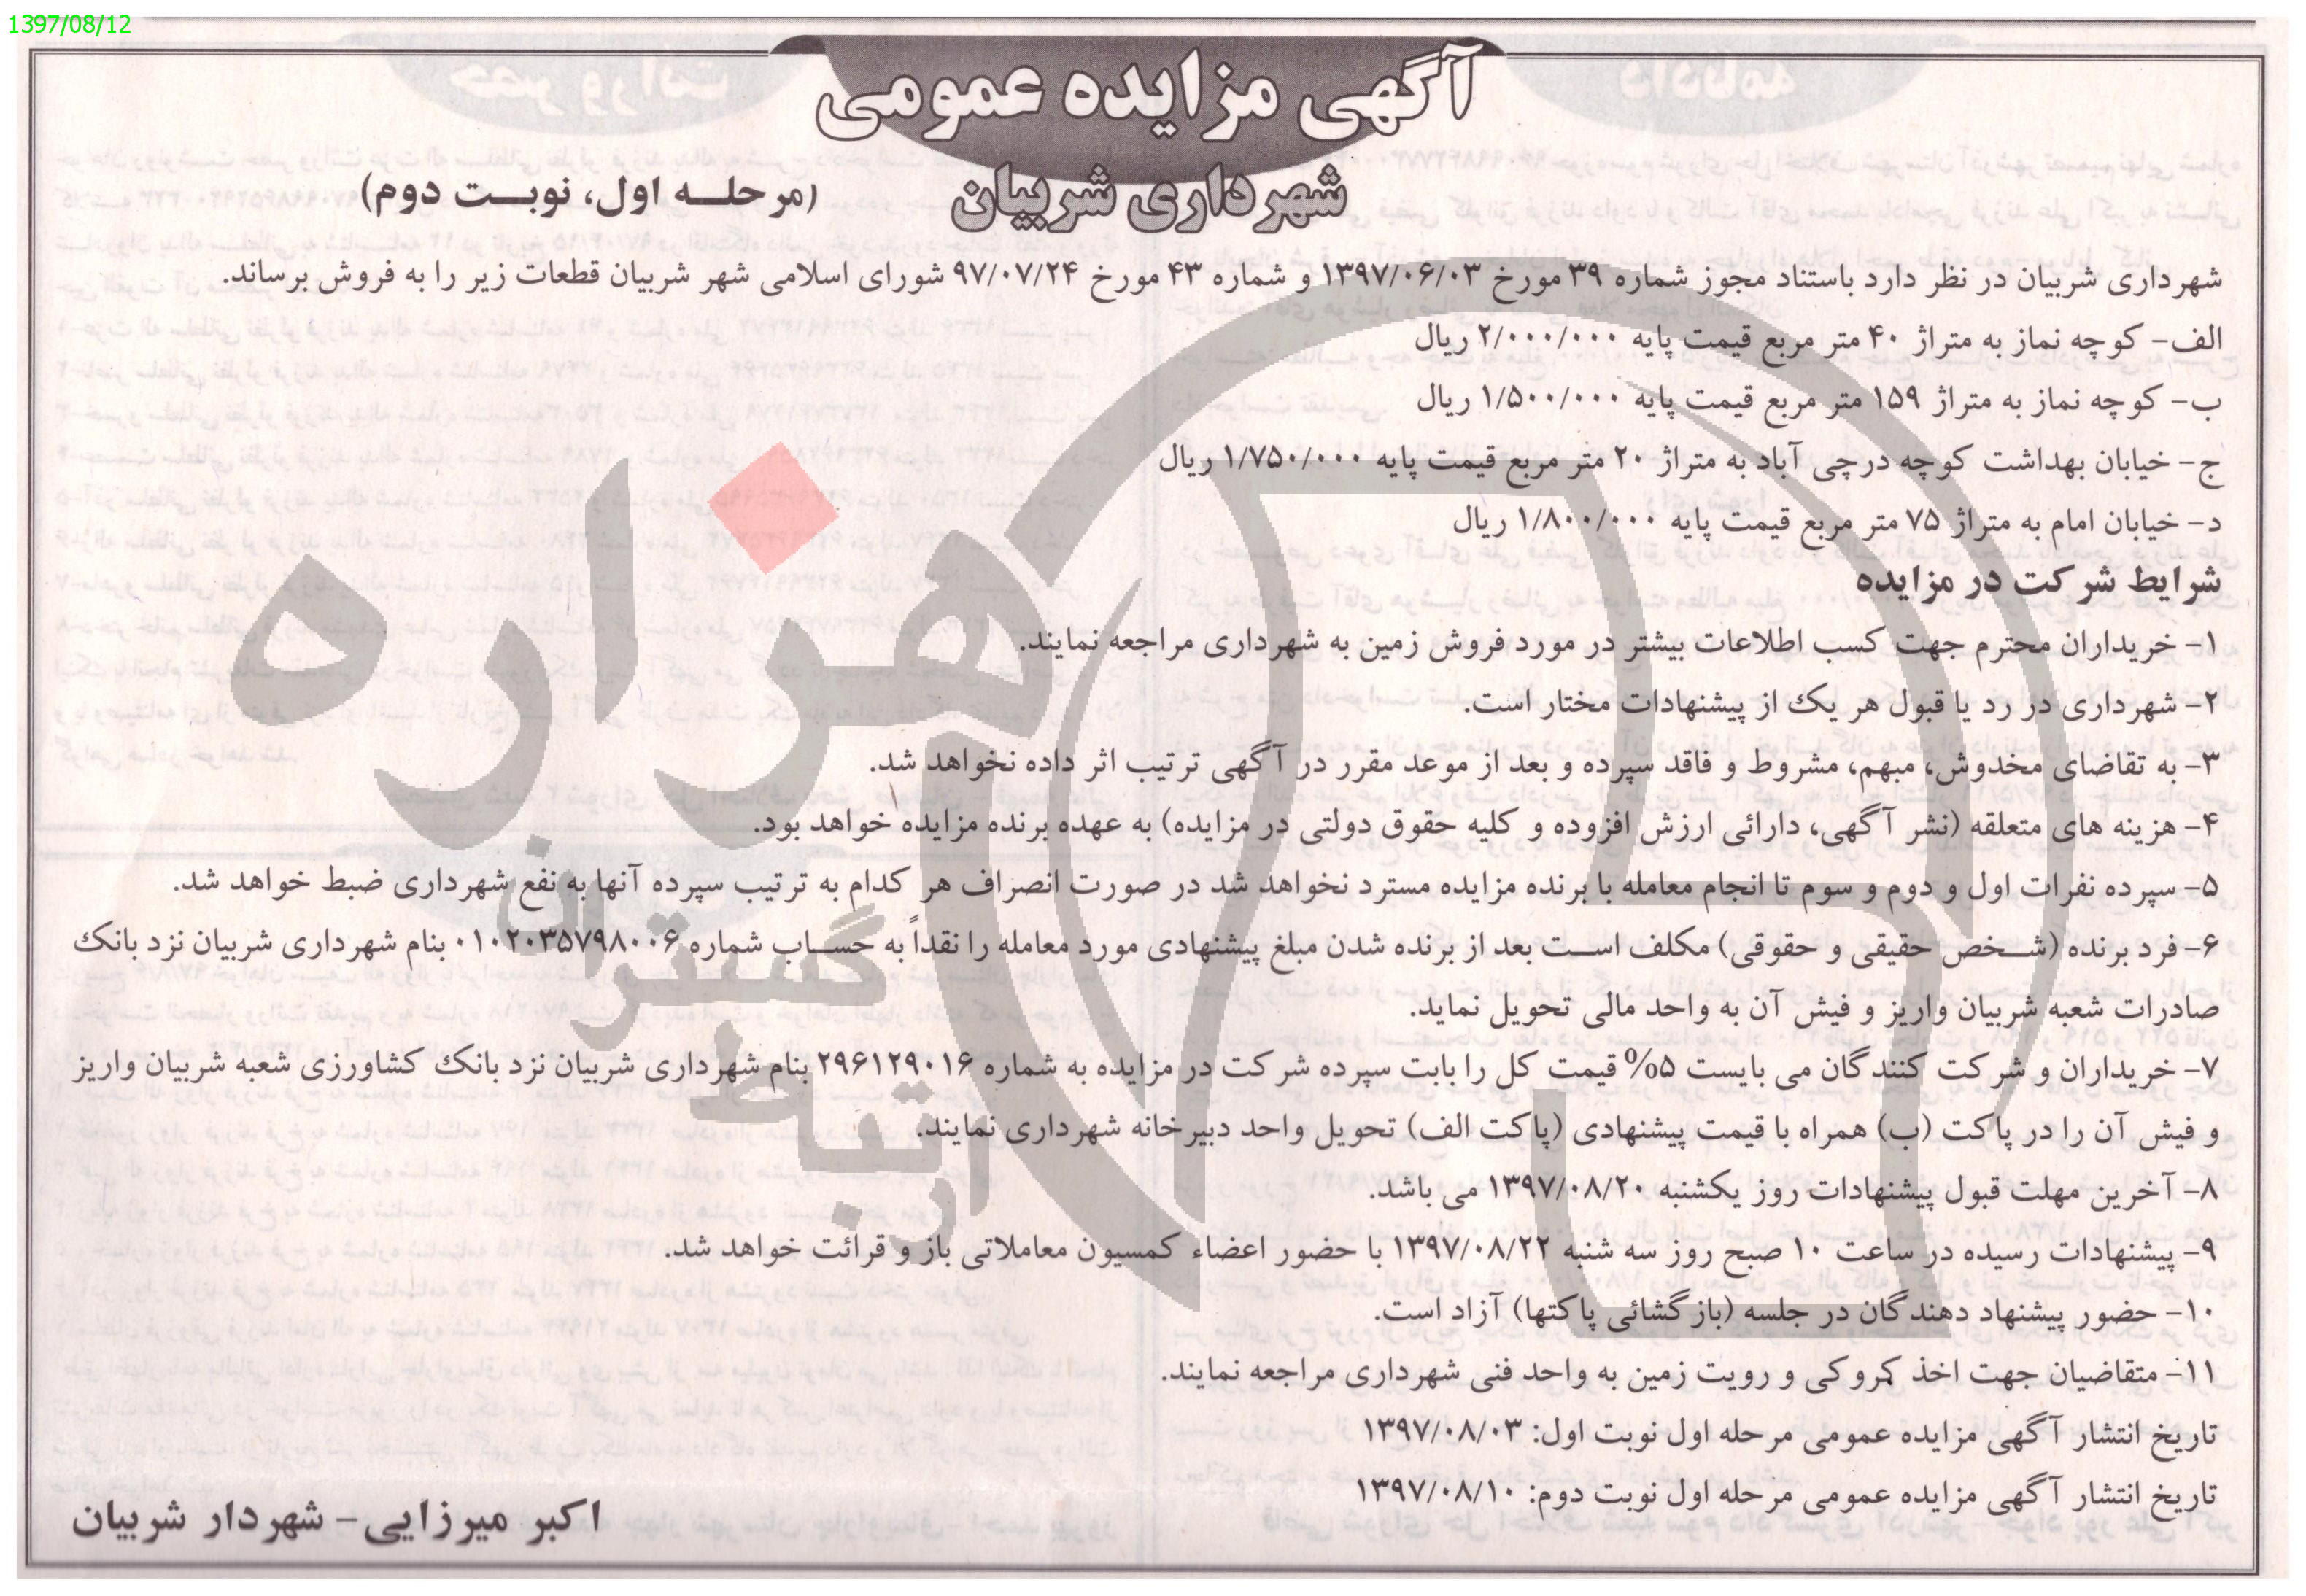 1397/08/12
آگهی مزایده عمومی
شهرداری شربیان
(مرحله اول، نوبت دوم)
شهرداری شربیان در نظر دارد باستناد مجوز شماره ۳۹ مورخ ۱۳۹۷/۰۶/۰۳ و شماره ۴۳ مورخ ۹۷/۰۷/۲۴ شورای اسلامی شهر شربیان قطعات زیر را به فروش برساند.
الف- کوچه نماز به متراژ ۴۰ متر مربع قیمت پایه ۲/۰۰۰/۰۰۰ ریال
ب- کوچه نماز به متراژ ۱۵۹ متر مربع قیمت پایه ۱/۵۰۰/۰۰۰ ریال
ج- خیابان بهداشت کوچه درچی آباد به متراژ ۲۰ متر مربع قیمت پایه ۱/۷۵۰/۰۰۰ ریال
د- خیابان امام به متراژ ۷۵ متر مربع قیمت پایه ۱/۸۰۰/۰۰۰ ریال
شرایط شرکت در مزایده
۱- خریداران محترم جهت کسب اطلاعات بیشتر در مورد فروش زمین به شهرداری مراجعه نمایند.
۲- شهرداری در رد یا قبول هر یک از پیشنهادات مختار است.
۳- به تقاضای مخدوش، مبهم، مشروط و فاقد سپرده و بعد از موعد مقرر در آگهی ترتیب اثر داده نخواهد شد.
۴- هزینه های متعلقه (نشر آگهی، دارائی ارزش افزوده و کلیه حقوق دولتی در مزایده) به عهده برنده مزایده خواهد بود.
۵- سپرده نفرات اول و دوم و سوم تا انجام معامله با برنده مزایده مسترد نخواهد شد در صورت انصراف هر کدام به ترتیب سپرده آنها به نفع شهرداری ضبط خواهد شد.
۶- فرد برنده (شخص حقیقی و حقوقی) مکلف است بعد از برنده شدن مبلغ پیشنهادی مورد معامله را نقداً به حساب شماره ۰۱۰۲۰۳۵۷۹۸۰۰۶ بنام شهرداری شربیان نزد بانک
صادرات شعبه شربیان واریز و فیش آن به واحد مالی تحویل نماید.
۷- خریداران و شرکت کنندگان می بایست ۵% قیمت کل را بابت سپرده شرکت در مزایده به شماره ۲۹۶۱۲۹۰۱۶ بنام شهرداری شربیان نزد بانک کشاورزی شعبه شربیان واریز
و فیش آن را در پاکت (ب) همراه با قیمت پیشنهادی (پاکت الف) تحویل واحد دبیرخانه شهرداری نمایند.
۸- آخرین مهلت قبول پیشنهادات روز یکشنبه ۱۳۹۷/۰۸/۲۰ می باشد.
۹- پیشنهادات رسیده در ساعت ۱۰ صبح روز سه شنبه ۱۳۹۷/۰۸/۲۲ با حضور اعضاء کمسیون معاملاتی باز و قرائت خواهد شد.
۱۰- حضور پیشنهاد دهندگان در جلسه (بازگشائی پاکتها) آزاد است.
۱۱- متقاضیان جهت اخذ کروکی و رویت زمین به واحد فنی شهرداری مراجعه نمایند.
تاریخ انتشار آگهی مزایده عمومی مرحله اول نوبت اول: ۱۳۹۷/۰۸/۰۳
تاریخ انتشار آگهی مزایده عمومی مرحله اول نوبت دوم: ۱۳۹۷/۰۸/۱۰
اکبر میرزایی- شهردار شربیان
هزاره
گستران
ارتباط